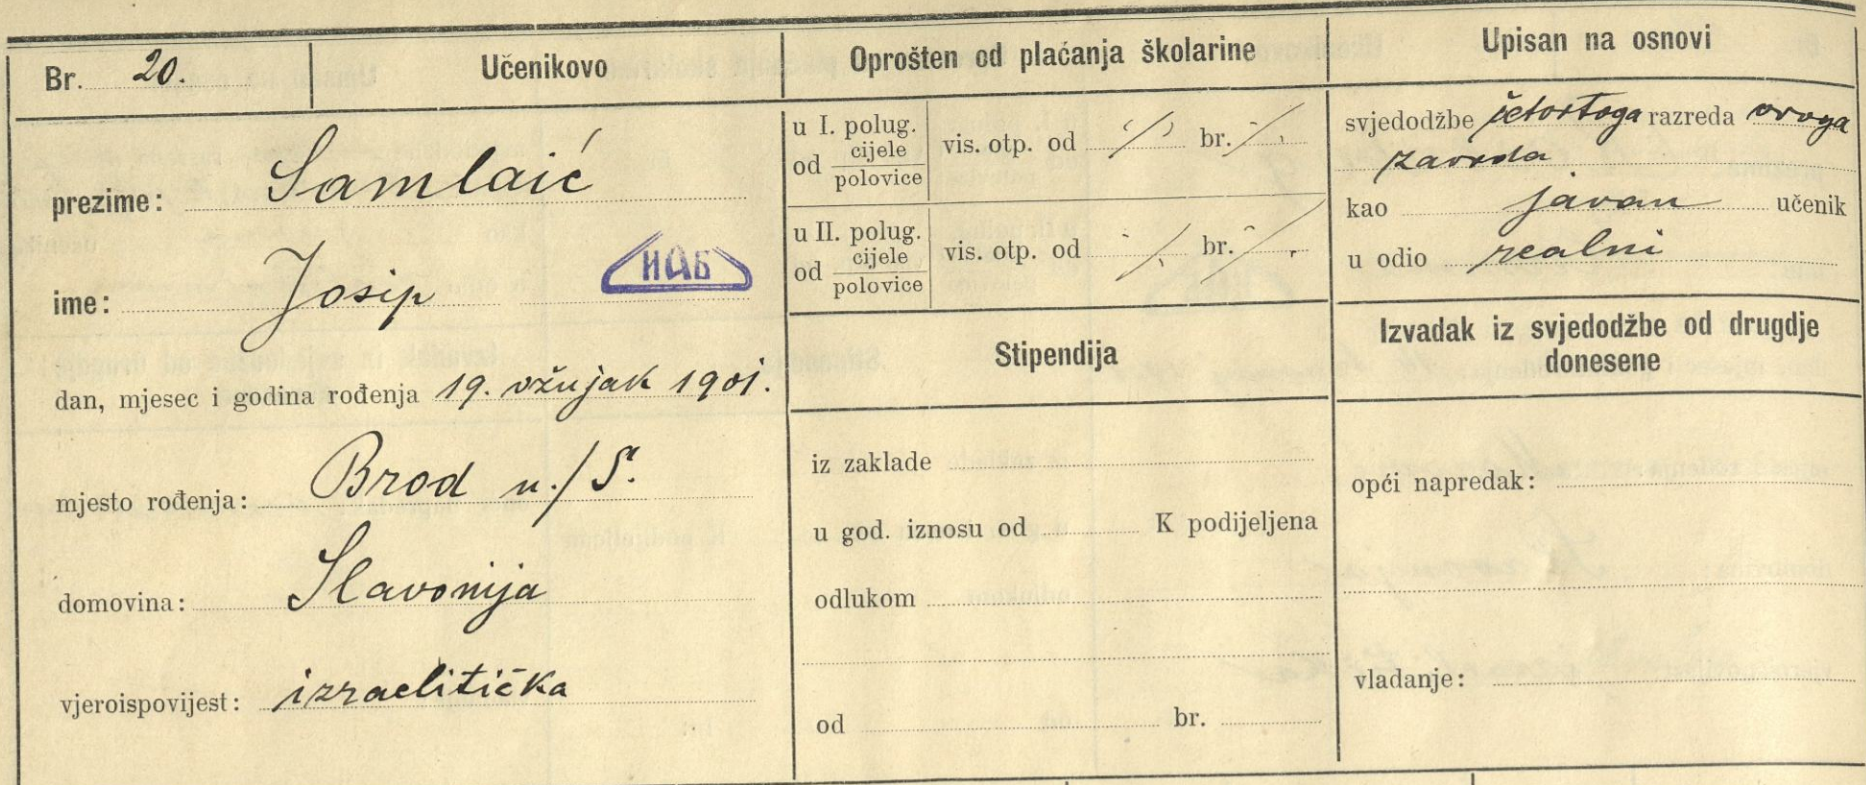 Br. 20.
Učenikovo
prezime: Samlaić
ime: Josip
НАБ
dan, mjesec i godina rođenja 19. ožujak 1901.
mjesto rođenja: Brod n./S.
domovina: Slavonija
vjeroispovijest: izraelitička
Oprošten od plaćanja školarine
u I. polug.
od cijele
polovice
vis. otp. od ·/. br. ·/.
u II. polug.
od cijele
polovice
vis. otp. od ·/. br. ·/.
Stipendija
iz zaklade
u god. iznosu od K podijeljena
odlukom
od br.
Upisan na osnovi
svjedodžbe četvrtoga razreda ovoga
zavoda
kao javan učenik
u odio realni
Izvadak iz svjedodžbe od drugdje
donesene
opći napredak:
vladanje: